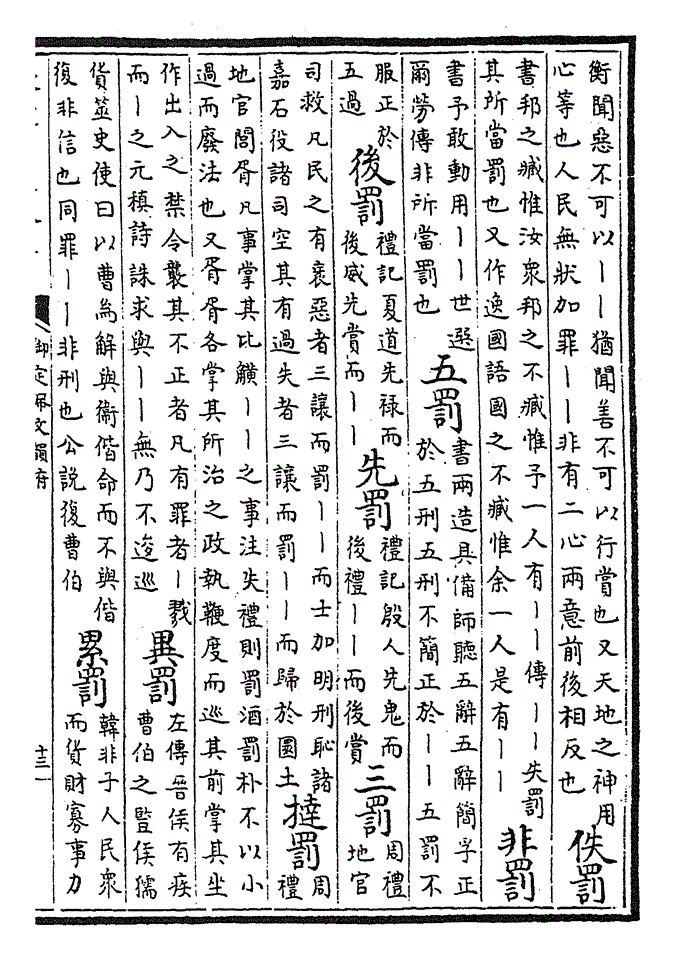 衡聞惡不可以丨丨猶聞善不可以行賞也又天地之神用
心等也人民無狀加罪丨丨非有二心兩意前後相反也
佚罰
書邦之臧惟汝衆邦之不臧惟予一人有丨丨傳丨丨失罰
其所當罰也又作逸國語國之不臧惟余一人是有丨丨
非罰
書予敢動用丨丨世選
爾勞傳非所當罰也
五罰
書兩造具備師聽五辭五辭簡孚正
於五刑五刑不簡正於丨丨五罰不
服正於
五過
後罰
禮記夏道先祿而
後威先賞而丨丨
先罰
禮記殷人先鬼而
後禮丨丨而後賞
三罰
周禮
地官
司救凡民之有衺惡者三讓而罰丨丨而士加明刑恥諸
嘉石役諸司空其有過失者三讓而罰丨丨而歸於圜土
撻罰
周
禮
地官閭胥凡事掌其比觵丨丨之事注失禮則罰酒罰朴不以小
過而廢法也又胥胥各掌其所治之政執鞭度而巡其前掌其坐
作出入之禁令襲其不正者凡有罪者丨戮
而丨之元稹詩誅求與丨丨無乃不逡巡
異罰
左傳晉侯有疾
曹伯之豎侯獳
貨筮史使曰以曹為解與衞偕命而不與偕
復非信也同罪丨丨非刑也公說復曹伯
累罰
韓非子人民衆
而貨財寡事力
御定佩文韻府
十三